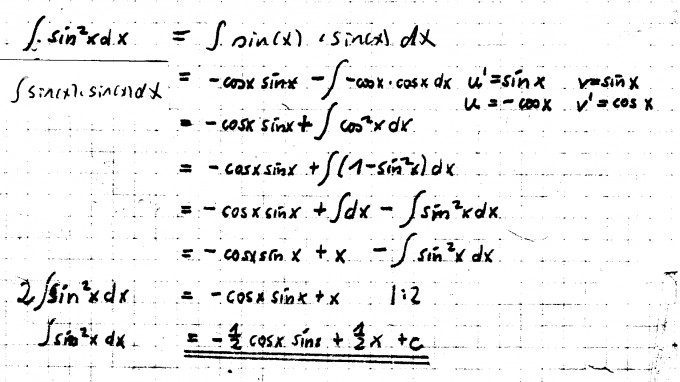 ∫ sin²x dx = ∫ sin(x) · sin(x) dx
∫ sin(x) · sin(x) dx = -cosx sinx - ∫ -cosx · cosx dx u' = sin x v = sin x
u = -cosx v' = cos x
= -cosx sinx + ∫ cos²x dx
= -cosx sinx + ∫ (1 - sin²x) dx
= -cosx sinx + ∫ dx - ∫ sin²x dx
= -cosx sin x + x - ∫ sin²x dx
2 ∫ sin²x dx = -cosx sinx + x |:2
∫ sin²x dx = -1/2 cosx sinx + 1/2 x + c